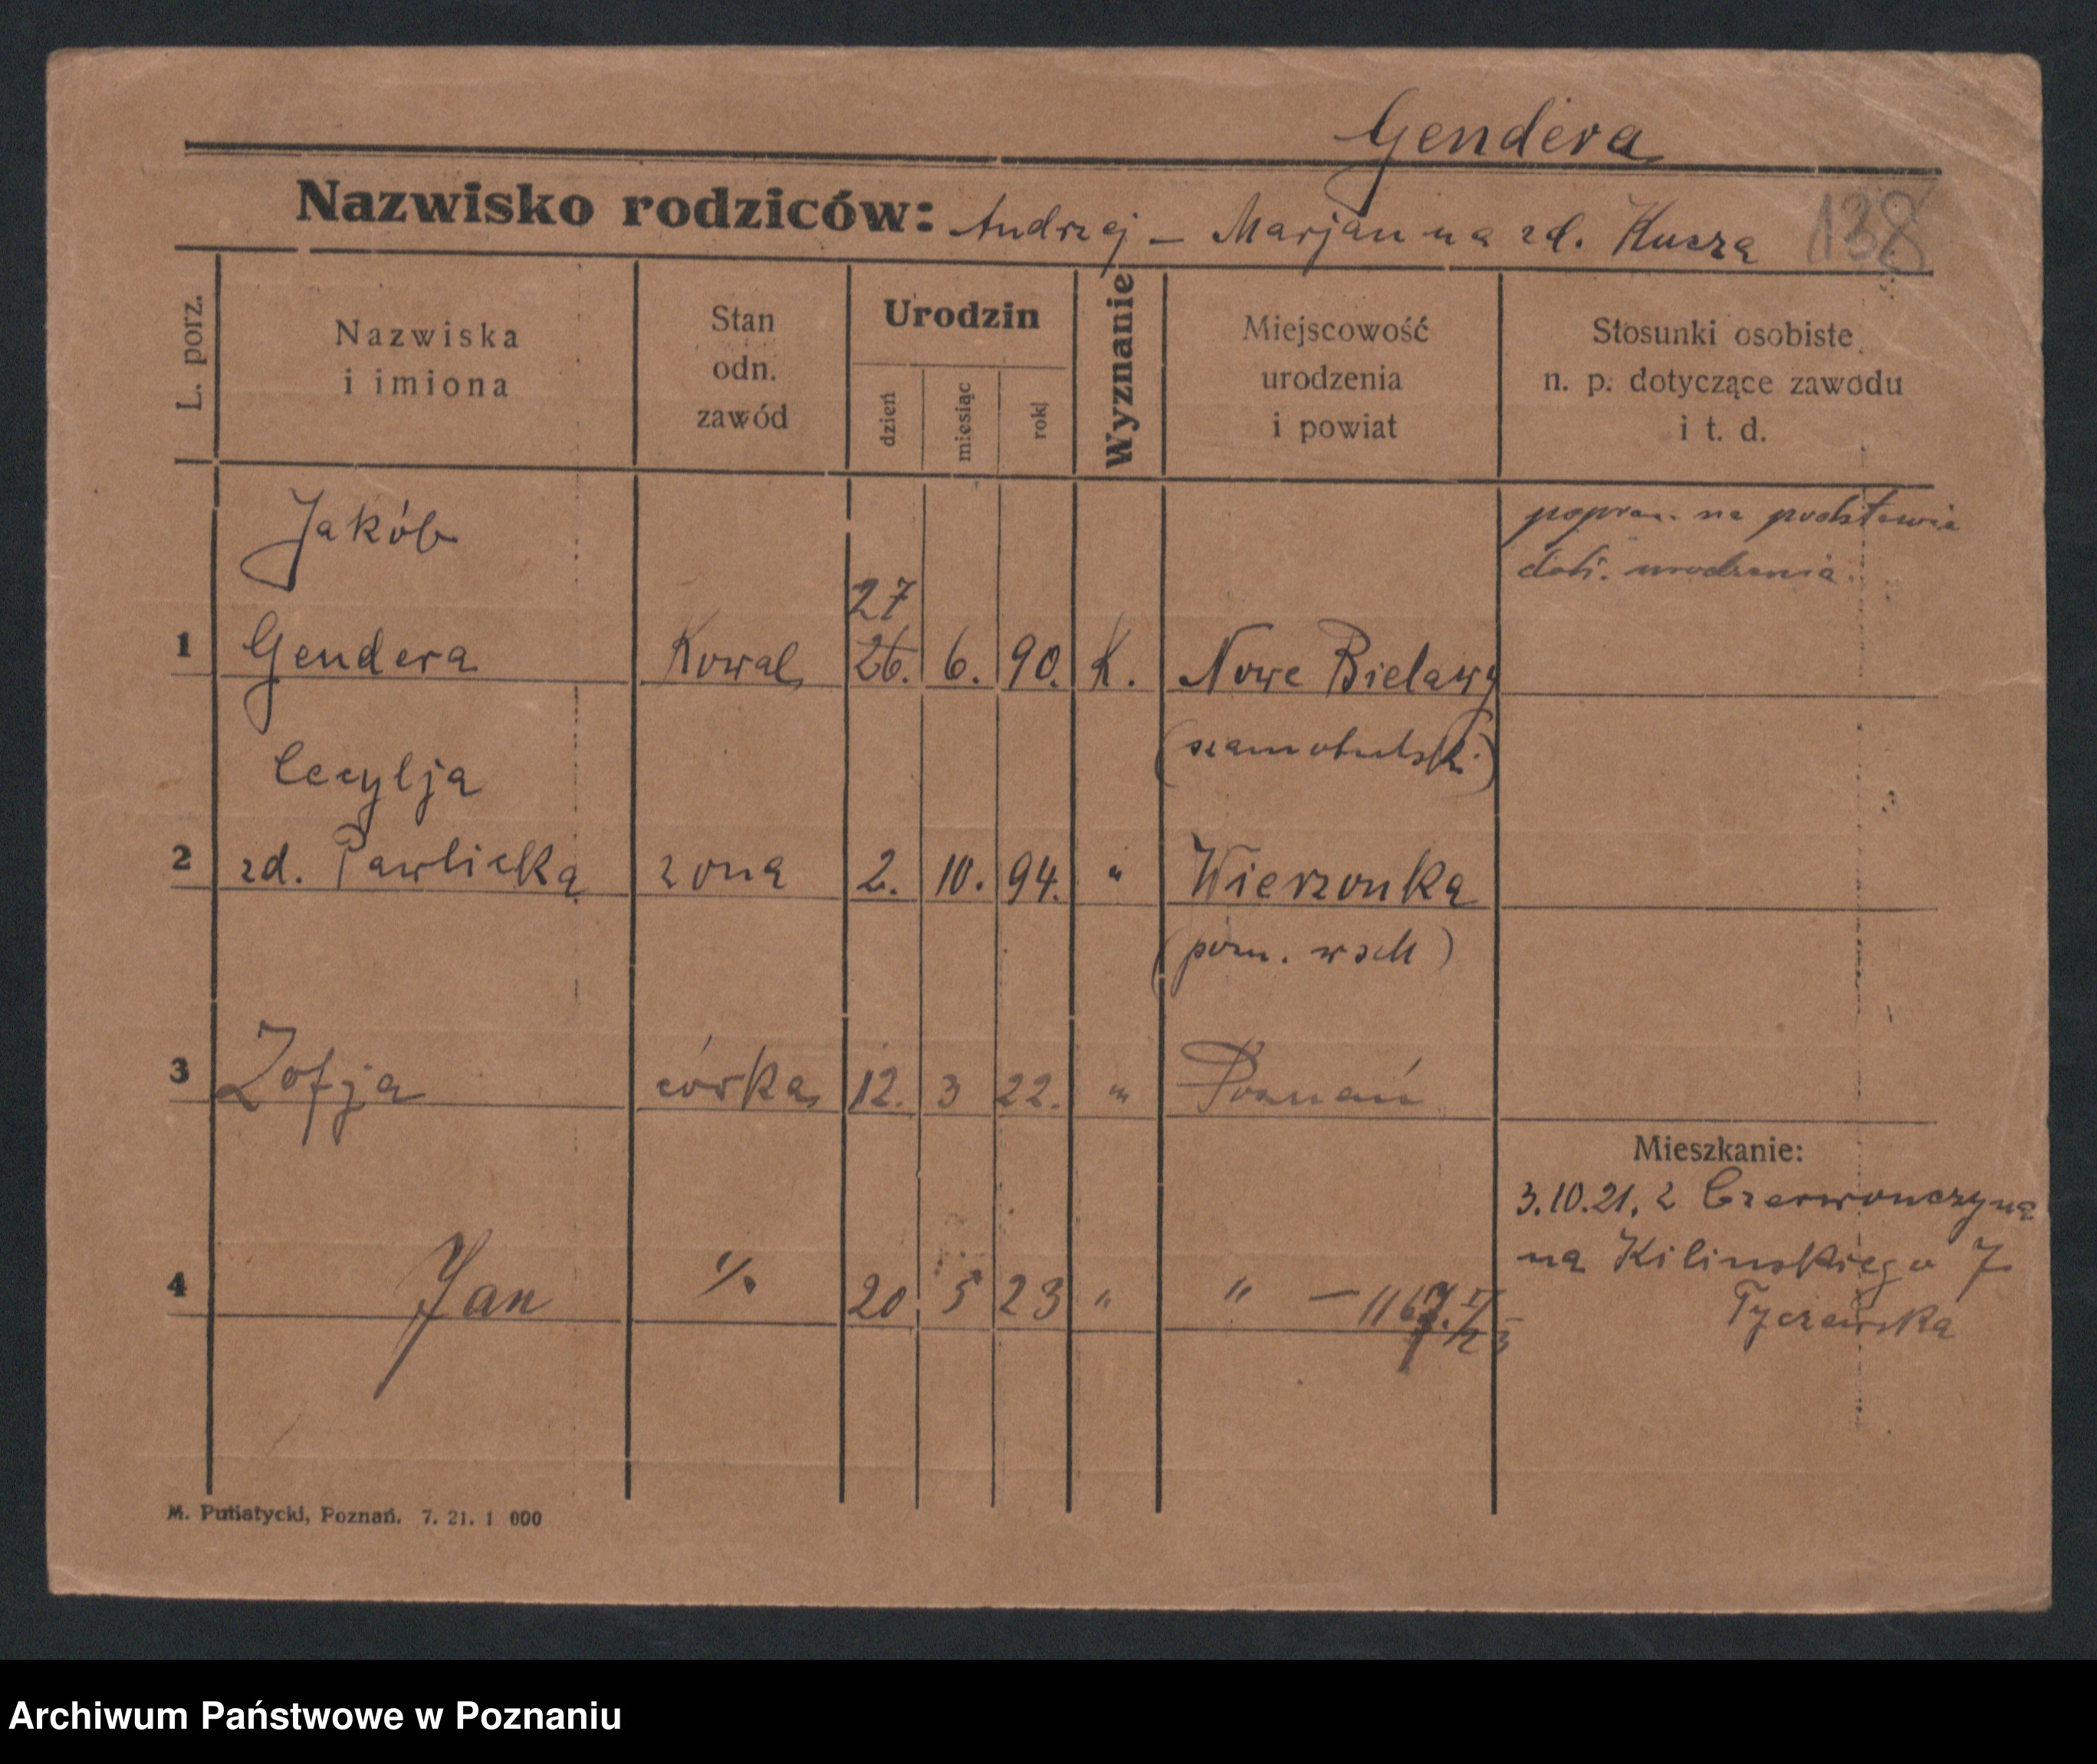 Gendera
Nazwisko rodziców: Andrzej – Marjanna zd. Kucza
138
L. porz.
Nazwiska
i imiona
Stan
odn.
zawód
Urodzin
dzień
miesiąc
rok
Wyznanie
Miejscowość
urodzenia
i powiat
Stosunki osobiste
n. p. dotyczące zawodu
i t. d.
popraw. na podstawie
dok. urodzenia
Jakób
27
1 Gendera Kowal 26. 6. 90. K. Nowe Bielawy
(szamotulski)
Cecylja
2 zd. Pawlicka zona 2. 10. 94. " Wierzonka
(pozn. wsch)
3 Zofja córka 12. 3 22. " Poznań
Mieszkanie:
3.10.21. z Czerwonczyna
na Kilinskiego 7
Tyczewska
4 Jan ./. 20 5 23 " "
M. Putiatycki, Poznań. 7. 21. 1 000
Archiwum Państwowe w Poznaniu